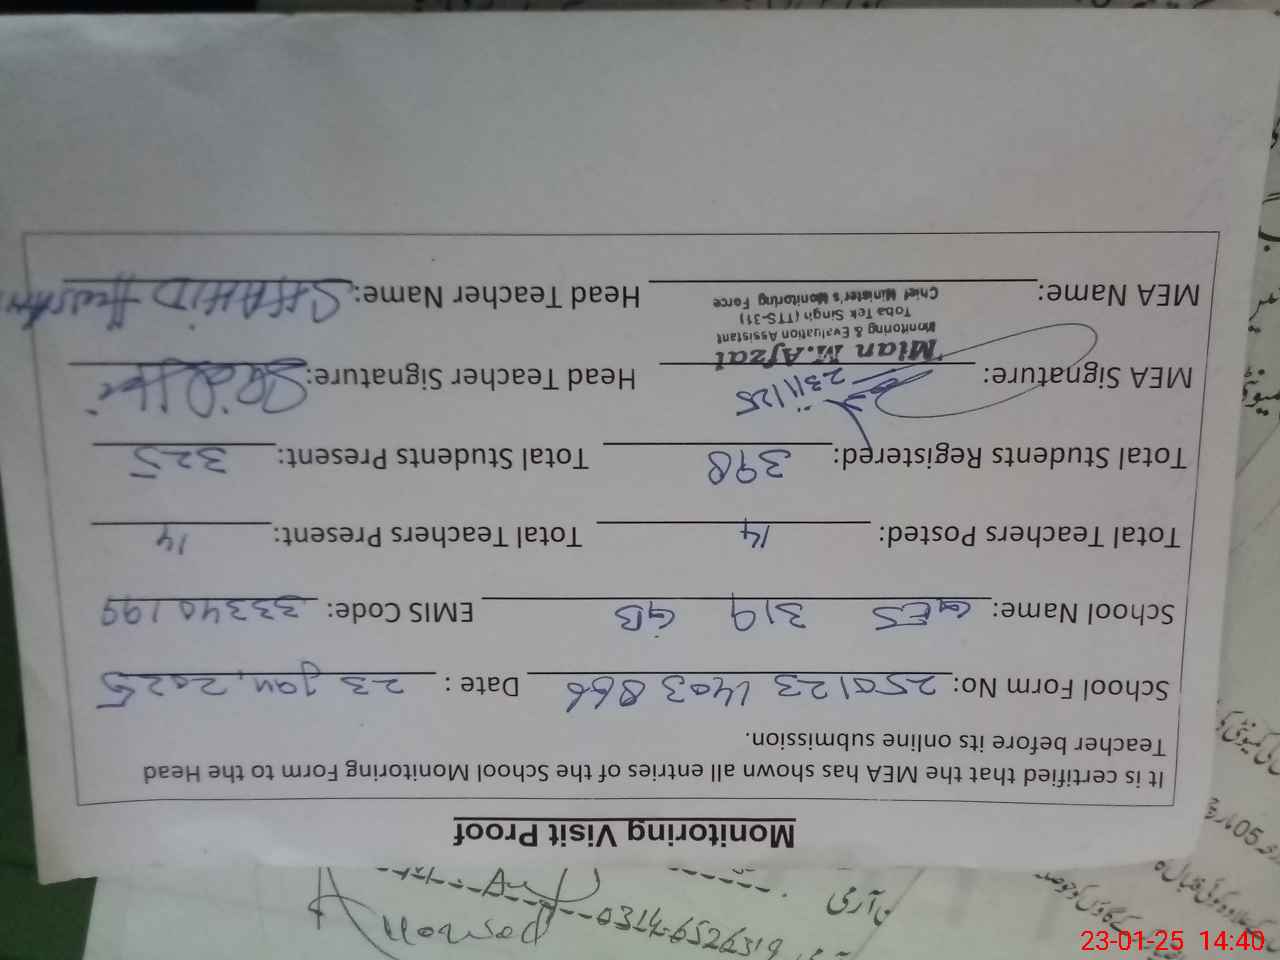 Monitoring Visit Proof
It is certified that the MEA has shown all entries of the School Monitoring Form to the Head
Teacher before its online submission.
School Form No: 250123 1403866 Date : 23 Jan, 2025
School Name: GES 319 GB EMIS Code: 33340199
Total Teachers Posted: 14 Total Teachers Present: 14
Total Students Registered: 398 Total Students Present: 325
MEA Signature: 23/1/25 Head Teacher Signature:
Mian M.Afzal
Monitoring & Evaluation Assistant
Toba Tek Singh (TTS-31)
Chief Minister's Monitoring Force
MEA Name: Head Teacher Name: SHAHID Hussain
0314-6526319
23-01-25 14:40